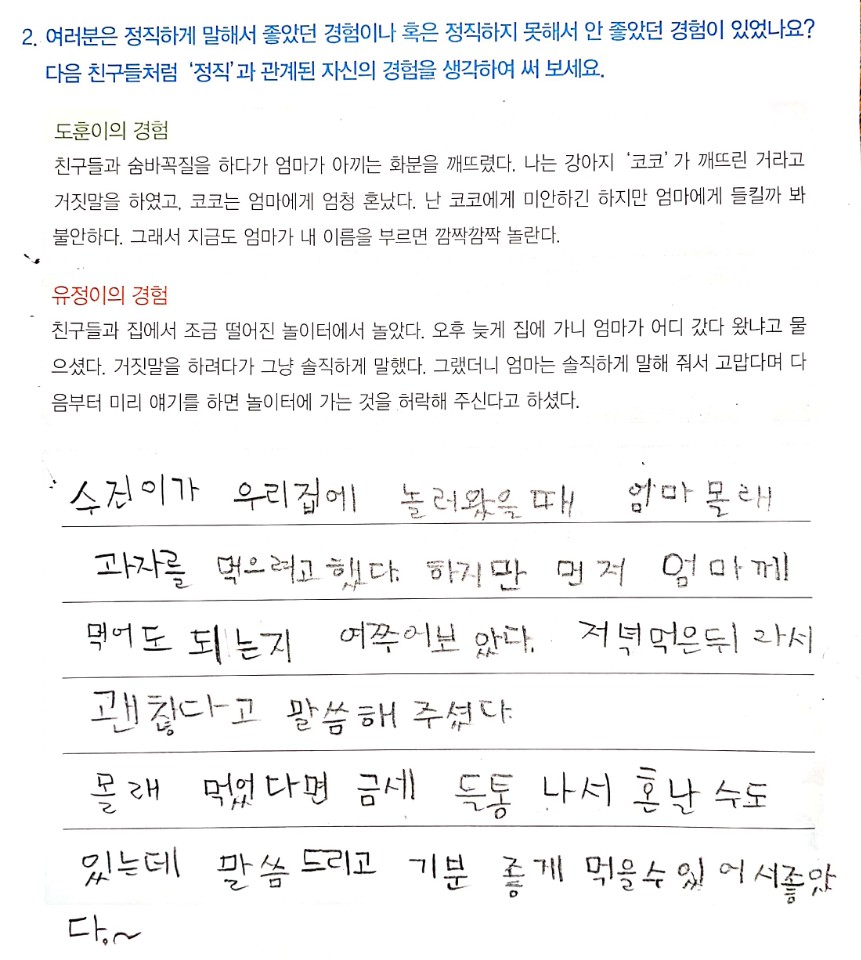 2. 여러분은 정직하게 말해서 좋았던 경험이나 혹은 정직하지 못해서 안 좋았던 경험이 있었나요?
다음 친구들처럼 ‘정직’과 관계된 자신의 경험을 생각하여 써 보세요.
도훈이의 경험
친구들과 숨바꼭질을 하다가 엄마가 아끼는 화분을 깨뜨렸다. 나는 강아지 ‘코코’가 깨뜨린 거라고
거짓말을 하였고, 코코는 엄마에게 엄청 혼났다. 난 코코에게 미안하긴 하지만 엄마에게 들킬까 봐
불안하다. 그래서 지금도 엄마가 내 이름을 부르면 깜짝깜짝 놀란다.
유정이의 경험
친구들과 집에서 조금 떨어진 놀이터에서 놀았다. 오후 늦게 집에 가니 엄마가 어디 갔다 왔냐고 물
으셨다. 거짓말을 하려다가 그냥 솔직하게 말했다. 그랬더니 엄마는 솔직하게 말해 줘서 고맙다며 다
음부터 미리 얘기를 하면 놀이터에 가는 것을 허락해 주신다고 하셨다.
수진이가 우리집에 놀러왔을때 엄마몰래
과자를 먹으려고했다. 하지만 먼저 엄마께
먹어도 되는지 여쭈어보았다. 저녁먹은뒤라서
괜찮다고 말씀해 주셨다.
몰래 먹었다면 금세 들통 나서 혼날수도
있는데 말씀드리고 기분 좋게 먹을수있어서좋았
다.~